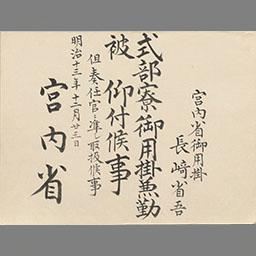 宮内省御用掛
長﨑省吾
式部寮御用掛兼勤
被 仰付候事
但奏任官ニ準シ取扱候事
明治十三年十二月廿三日
宮内省